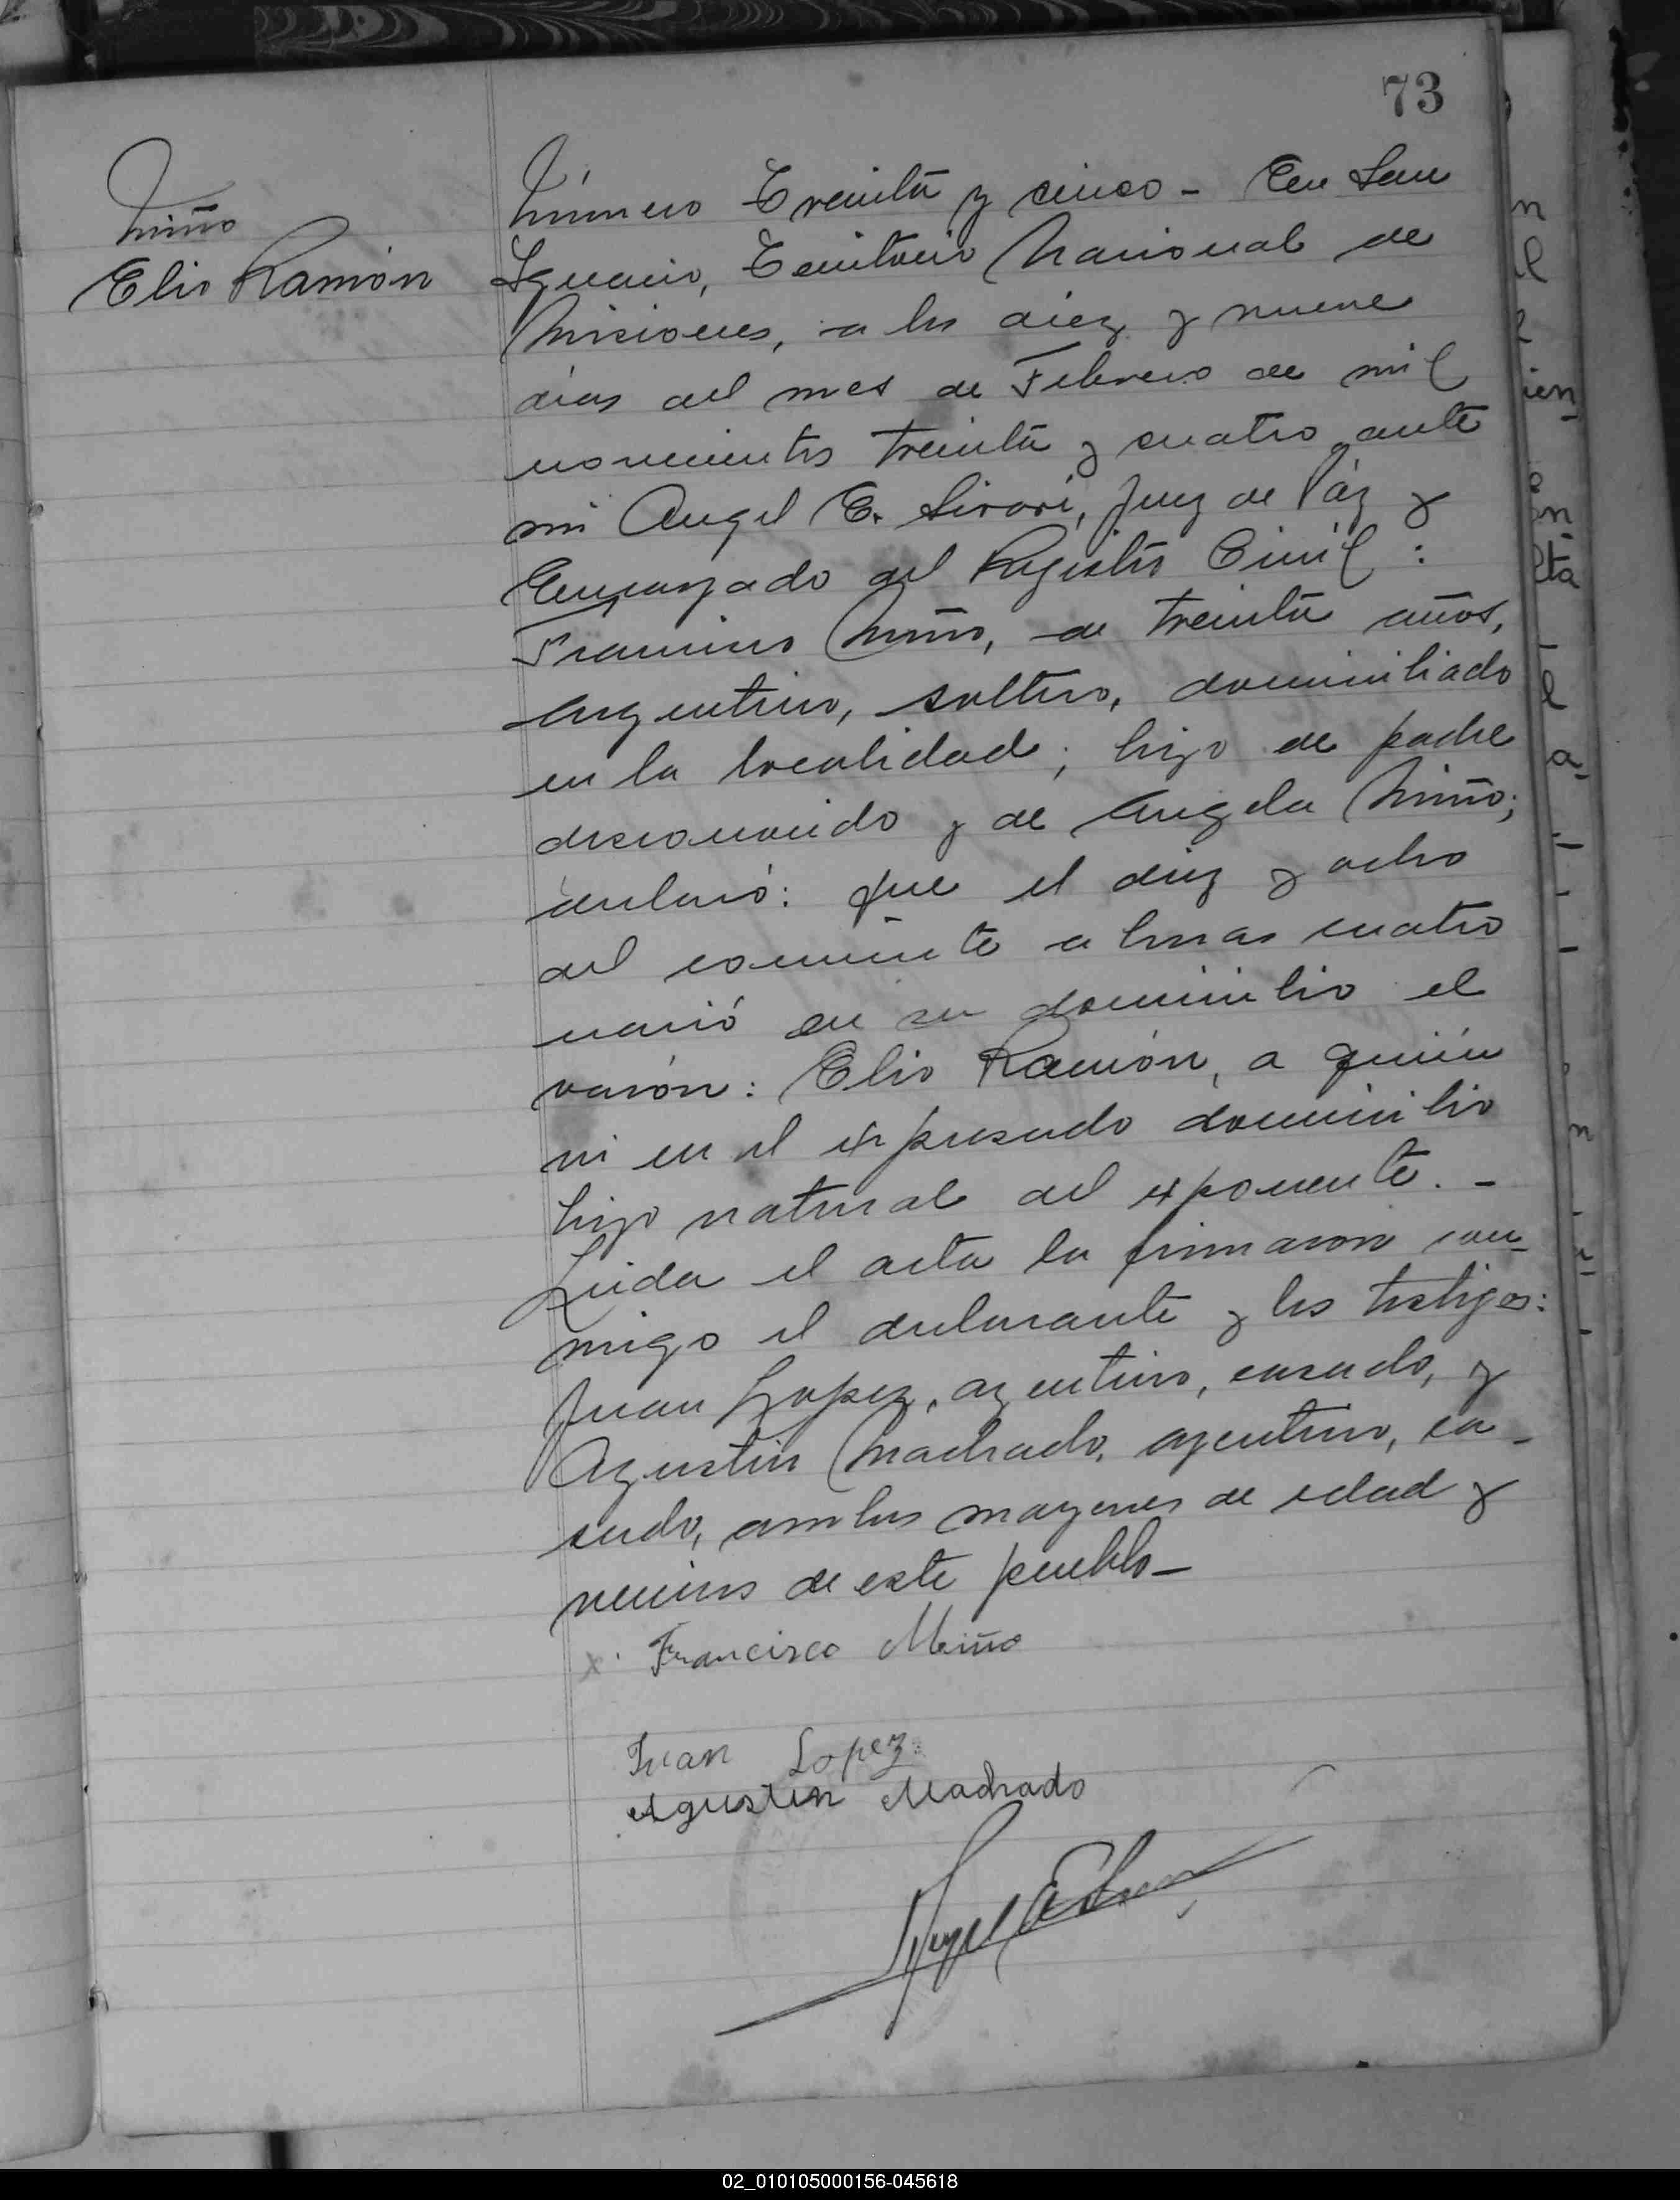 73
Miño
Elio Ramón
Número Treinta y cinco - En San
Ignacio, Territorio Nacional de
Misiones, a los diez y nueve
días del mes de Febrero de mil
novecientos treinta y cuatro, ante
mi Angel E. Sivori, Juez de Páz y
Encargado del Registro Civil :
Francisco Miño, de treinta años,
argentino, soltero, domiciliado
en la localidad; hijo de padre
desconocido y de Angela Miño;
declaró: que el diez y ocho
del corriente a horas cuatro
nació en su domicilio el
varón: Elio Ramón, a quién
ví en el expresado domicilio
hijo natural del exponente. -
Leida el acta la firmaron con-
migo el declarante y los testigos:
Juan Lopez, argentino, casado, y
Agustin Machado, argentino, ca-
sado, ambos mayores de edad y
vecinos de este pueblo -
x Francisco Miño
Juan Lopez
Agustin Machado
02_010105000156-045618